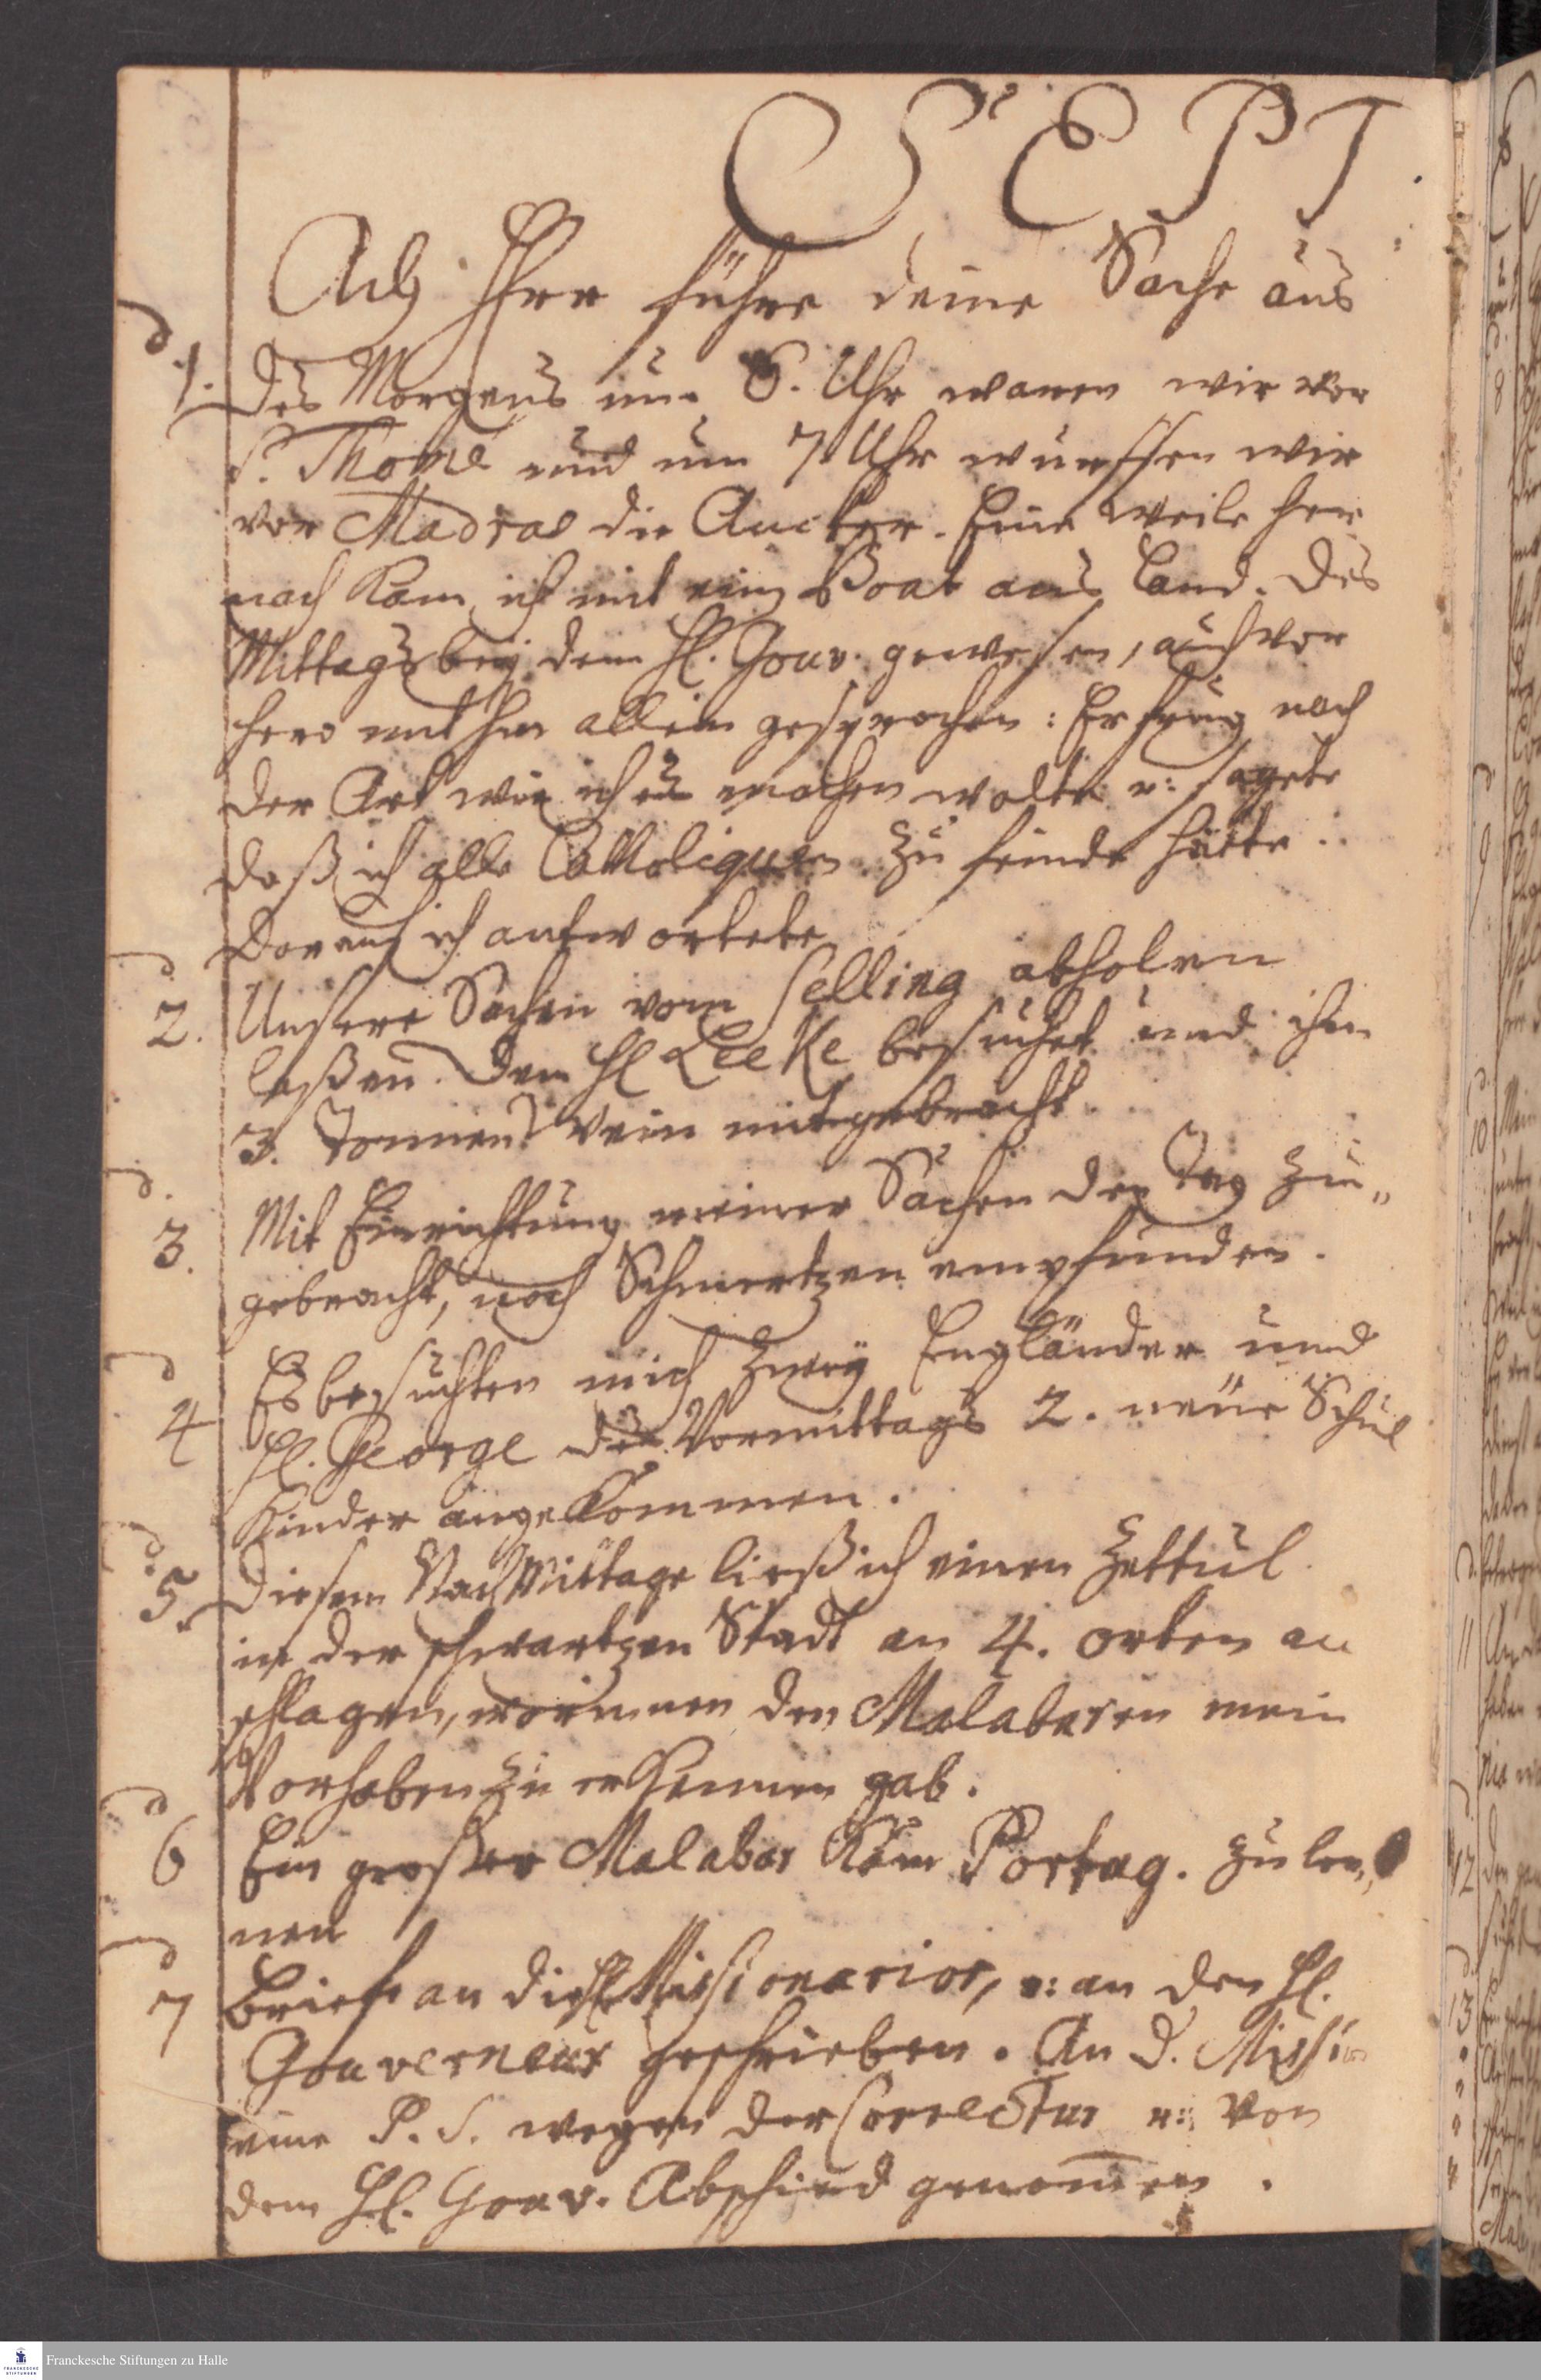 SEPT.
Ach Herr führe deine Sache aus
d
1. Des Morgens um 6. Uhr waren wir vor
S. Thomé und um 7 Uhr wurffen wir
vor Madras die Ancker. Eine weile her
nach kam ich mit ein Boat ans Land. Des
Mittags bey dem H. Gouv. gewesen, auch vor
hero mit ihm allein gesprochen: Er frug nach
der Art wie ich es machen wolte u: sagete
daß ich alle Catholiquen zu feinde hätte.
Darauf ich antwortete
d
2. Unsere Sachen vom Selling abholen
laßen. Dem H Leeke besuchet und ihm
3. Tonnen Wein mitgebracht.
d.
3. Mit Einrichtung meiner Sachen den Tag zu„
gebracht, noch Schmertzen empfunden.
d
4 Es besuchten mich zwey Engländer und
H. George des Vormittags 2. neue Schul
Kinder angekommen.
d
5. Diesen NachMittage ließ ich einen Zettul
in der schwartzen Stadt an 4. orten an
schlagen, worinnen den Malabaren mein
Vorhaben zu erkennen gab.
d
6 Ein großer Malabar kam Portug. zu ler„
nen
d
7 Briefe an die H Missionarios, u: an den H.
Gouverneur geschrieben. An d. Missi
eine P. S. wegen der Correctur u: von
dem H. Gouv. Abschied genom̅en.
Franckesche Stiftungen zu Halle